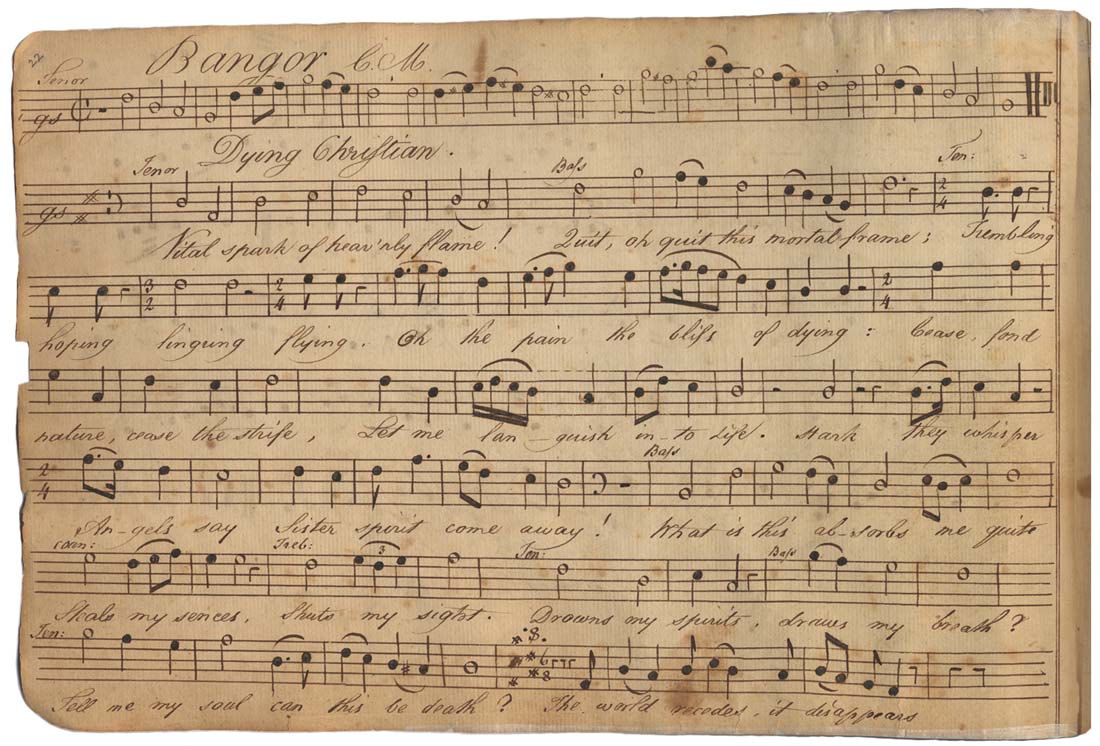 22
Bangor C.M.
Tenor
gs
Dying Christian.
Tenor Bass Ten:
gs 2 4
Vital spark of heav'nly flame! Quit, oh quit this mortal frame; Trembling
3 2 2 4 2 4
hoping linguring flying. Oh the pain the bliss of dying: Cease, fond
nature, cease the strife, Let me lan-guish in-to Life. Hark they whisper
Bass
2 4
An-gels say Sister spirit come away! What is this ab-sorbs me quite
Coun: Treb: 3 Ten: Bass
Steals my sences, Shuts my sight. Drowns my spirits, draws my breath?
Ten: 6 8
Tell me my soul can this be death? The world recedes, it disappears